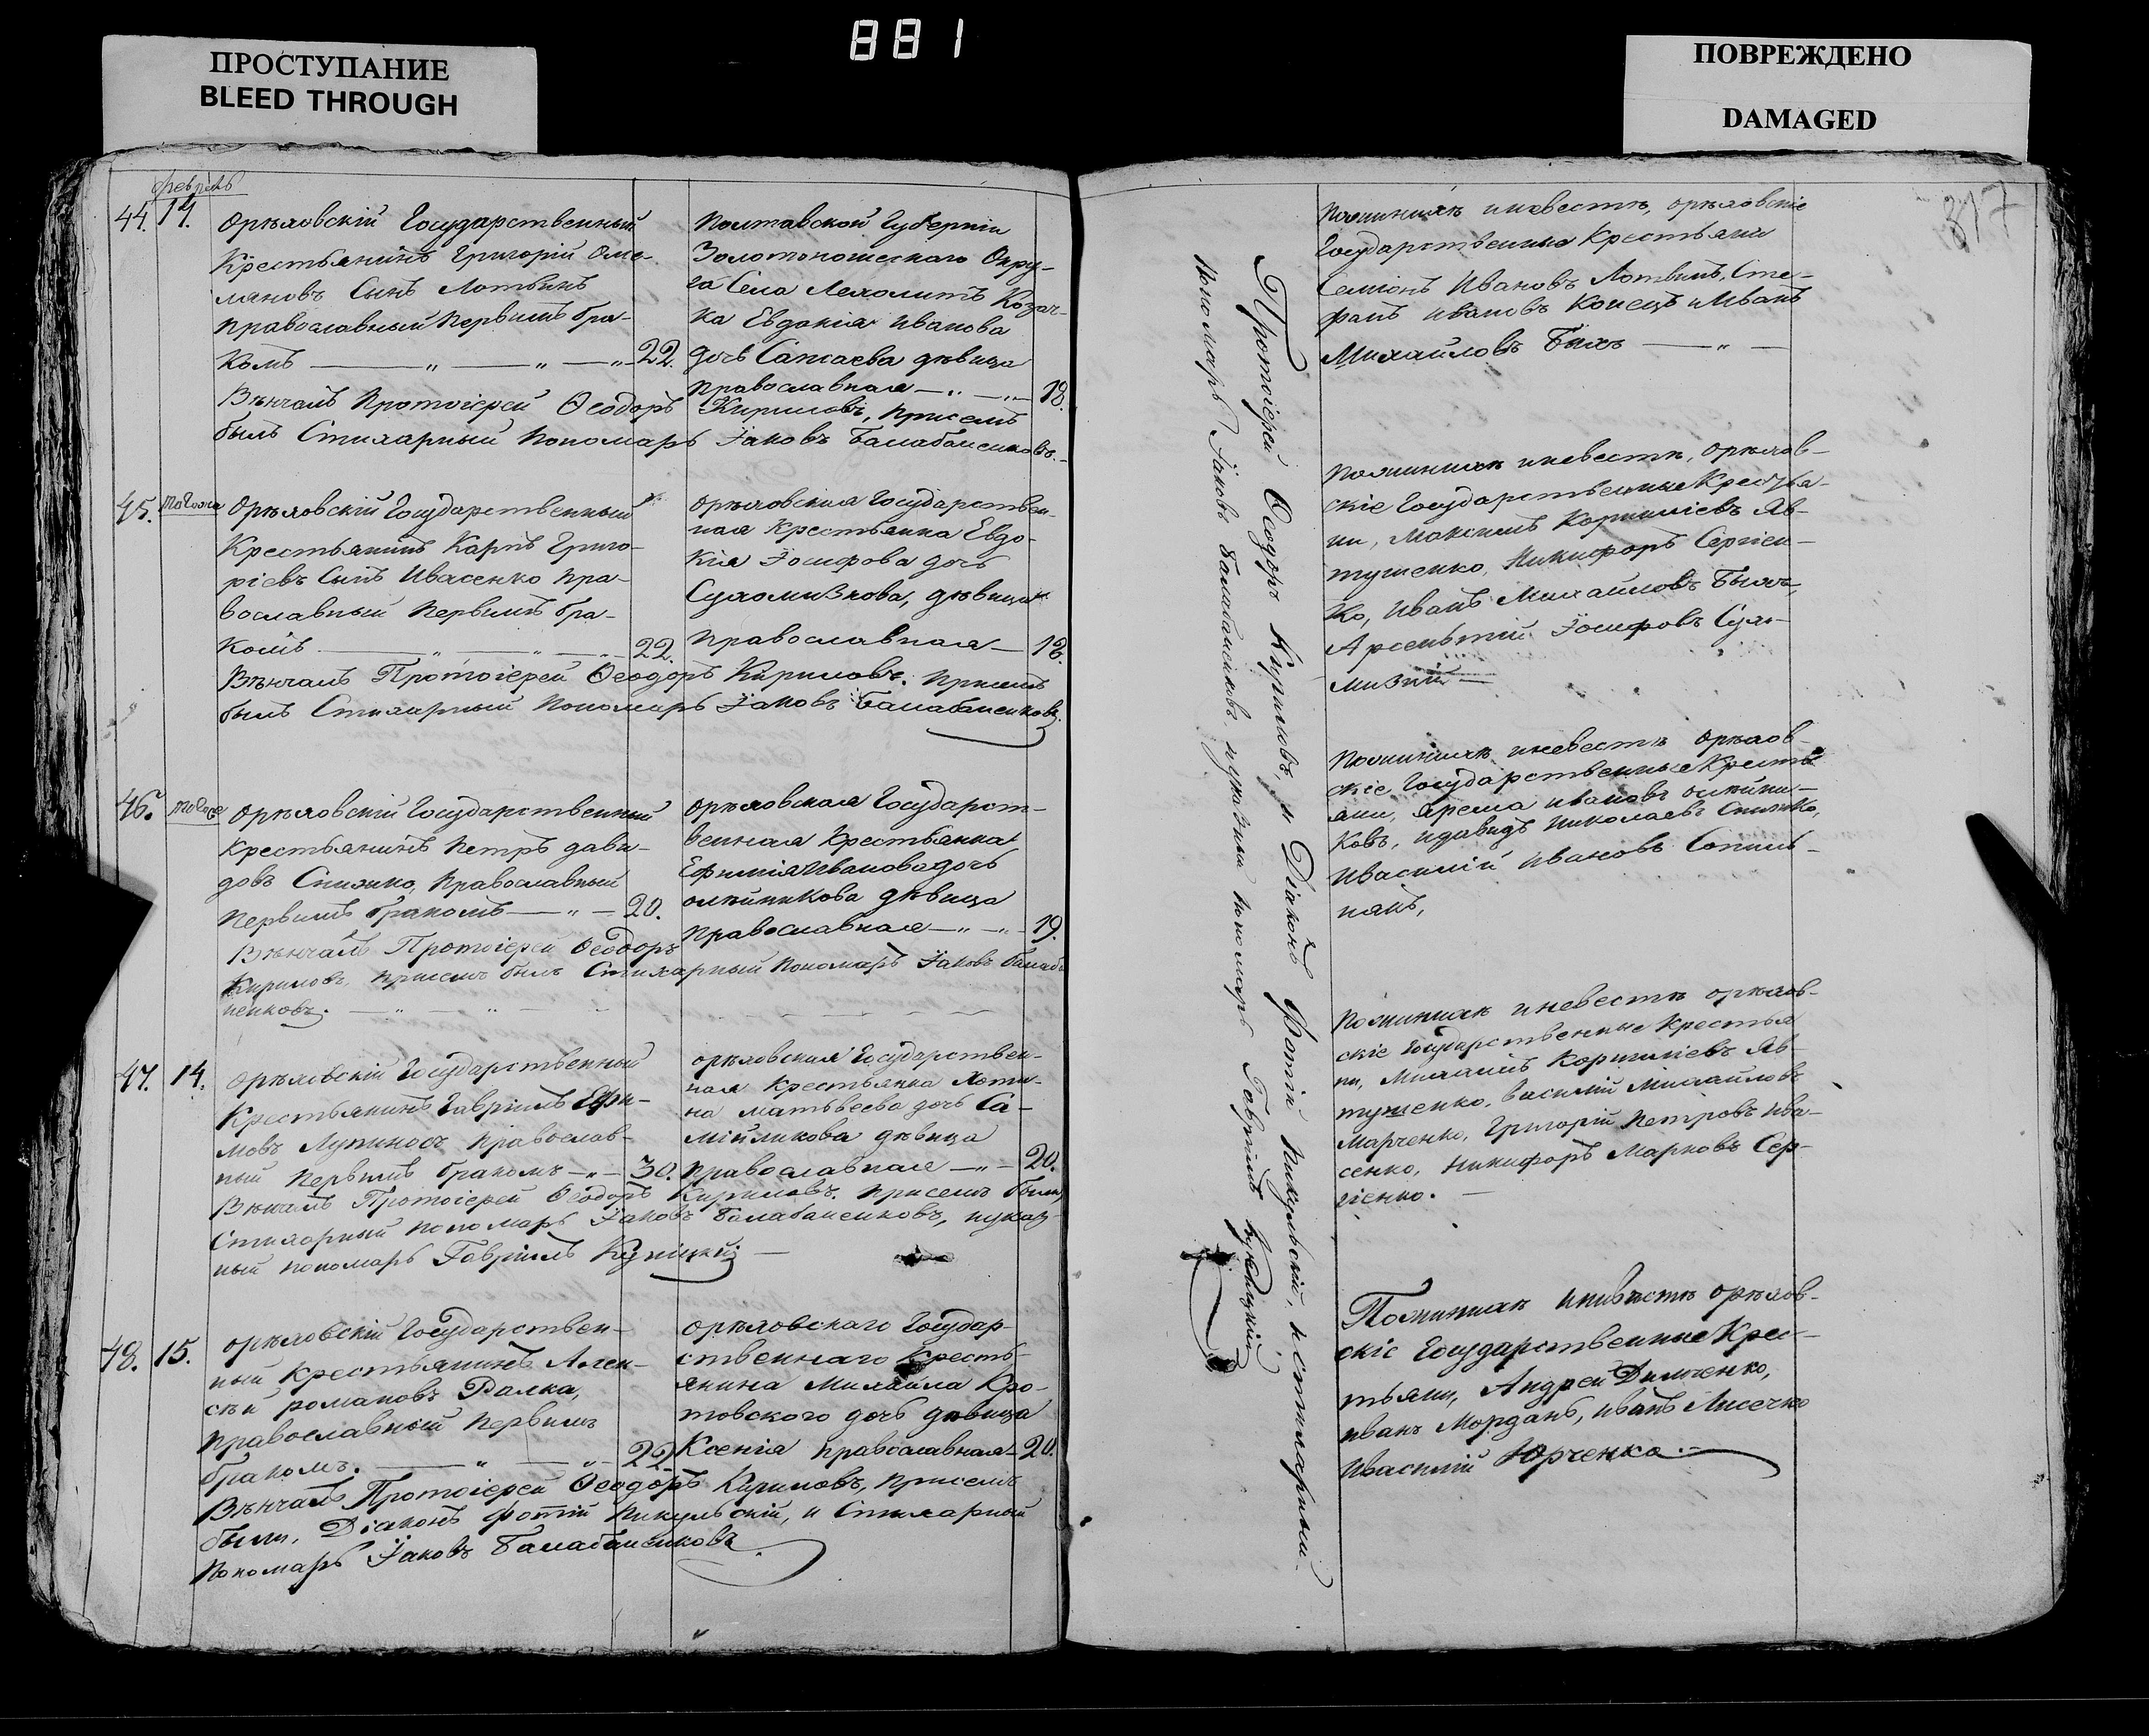 881
ПРОСТУПАНИЕ
BLEED THROUGH
ПОВРЕЖДЕНО
DAMAGED
317
февраль
44. 14.
Орѣловскій Государственный
Крестьянинъ Григорій Оме-
ляновъ Сынъ Лотвинъ
православный первымъ бра-
комъ 22.
Полтавской Губерніи
Золотоношескаго Окру-
га Села Козач-
ка Евдокія Иванова
дочь дѣвица
православная 18.
Вѣнчалъ Протоіерей Ѳеодоръ Кириловъ, присемъ
былъ Стихарный пономарь Іаковъ Балабаненковъ.
45. тогоже
Орѣловскій Государственный
Крестьянинъ Карпъ Григо-
ріевъ Сынъ Ивасенко пра-
вославный первымъ бра-
комъ 22.
Орѣловская Государствен-
ная крестьянка Евдо-
кія Іосифова дочь
Сухомизкова, дѣвица
православная 18.
Вѣнчалъ Протоіерей Ѳеодоръ Кириловъ. присемъ
былъ Стихарный пономарь Іаковъ Балабаненковъ.
46. тогоже
Орѣловскій Государственный
крестьянинъ Петръ дави-
довъ Спижко, православный
первымъ бракомъ 20.
орѣловская Государст-
венная крестьянка
Ефимія Иванова дочь
олѣйникова дѣвица
православная 19.
Вѣнчалъ Протоіерей Ѳеодоръ
Кириловъ, присемъ былъ Стихарный пономарь Іаковъ Балаба-
ненковъ.
47. 14.
орѣловскій Государственный
Крестьянинъ Гавріилъ Ефи-
мовъ Лупиносъ православ-
ный первымъ бракомъ 30.
орѣловская Государствен-
ная крестьянка Хоти-
на матьвеева дочь Са-
мійликова дѣвица
православная 20.
Вѣнчалъ Протоіерей Ѳеодоръ Кириловъ. присемъ были,
Стихарный пономарь Іаковъ Балабаненковъ, иуказ-
ный пономарь Гавріилъ Куницкій
48. 15.
орѣловскій Государствен-
ный крестьянинъ Алек-
сѣй романовъ Галка,
православный первымъ
бракомъ. 22.
орѣловскаго Государ-
ственнаго Кресть-
янина Михайла Кро-
товского дочь дѣвица
Ксенія православная 20.
Вѣнчалъ Протоіерей Ѳеодоръ Кириловъ, присемъ
были, Діаконъ Фотій Никульскій, и Стихарный
пономарь Іаковъ Балабаненковъ
Протоіерей Ѳеодоръ Кириловъ, и Діаконъ Фотій Никульскій, истихарный
пономарь Іаковъ Балабаненковъ иуказный пономарь Гавріилъ Куницкій
Поженихѣ иневестѣ, орѣловскіе
Государственные Крестьяни
Семіонъ Ивановъ Лотвинъ, Сте-
фанъ ивановъ Конецъ иИванъ
Михайловъ Быхъ
Поженихѣ иневестѣ, орѣлов-
скіе Государственные Крестья-
ни, Максимъ Корниліевъ Яв-
тушенко, Никифоръ Сергіен-
ко, Иванъ Михайловъ Быхъ,
Арсентій Іосифовъ Сухо-
мизкій
Поженихѣ иневестѣ орѣлов-
скіе Государственные Кресть-
яни, Ярема ивановъ олѣйни-
ковъ, идавидъ Николаевъ Спижко,
Ивасилій Ивановъ Сопиль-
някъ,
Поженихѣ иневестѣ орѣлов-
скіе Государственные крестья
ни, Михаилъ Корниліевъ Яв-
тушенко, василій Михайловъ
Марченко, Григорій Петровъ ива-
сенко, Никифоръ Марковъ Сер-
гіенко.
Поженихѣ иневѣстѣ орѣлов-
скіе Государственные Крес-
тьяни, Андрей Димченко,
иванъ Морданъ, иванъ Лисечко
Ивасилій Юрченко